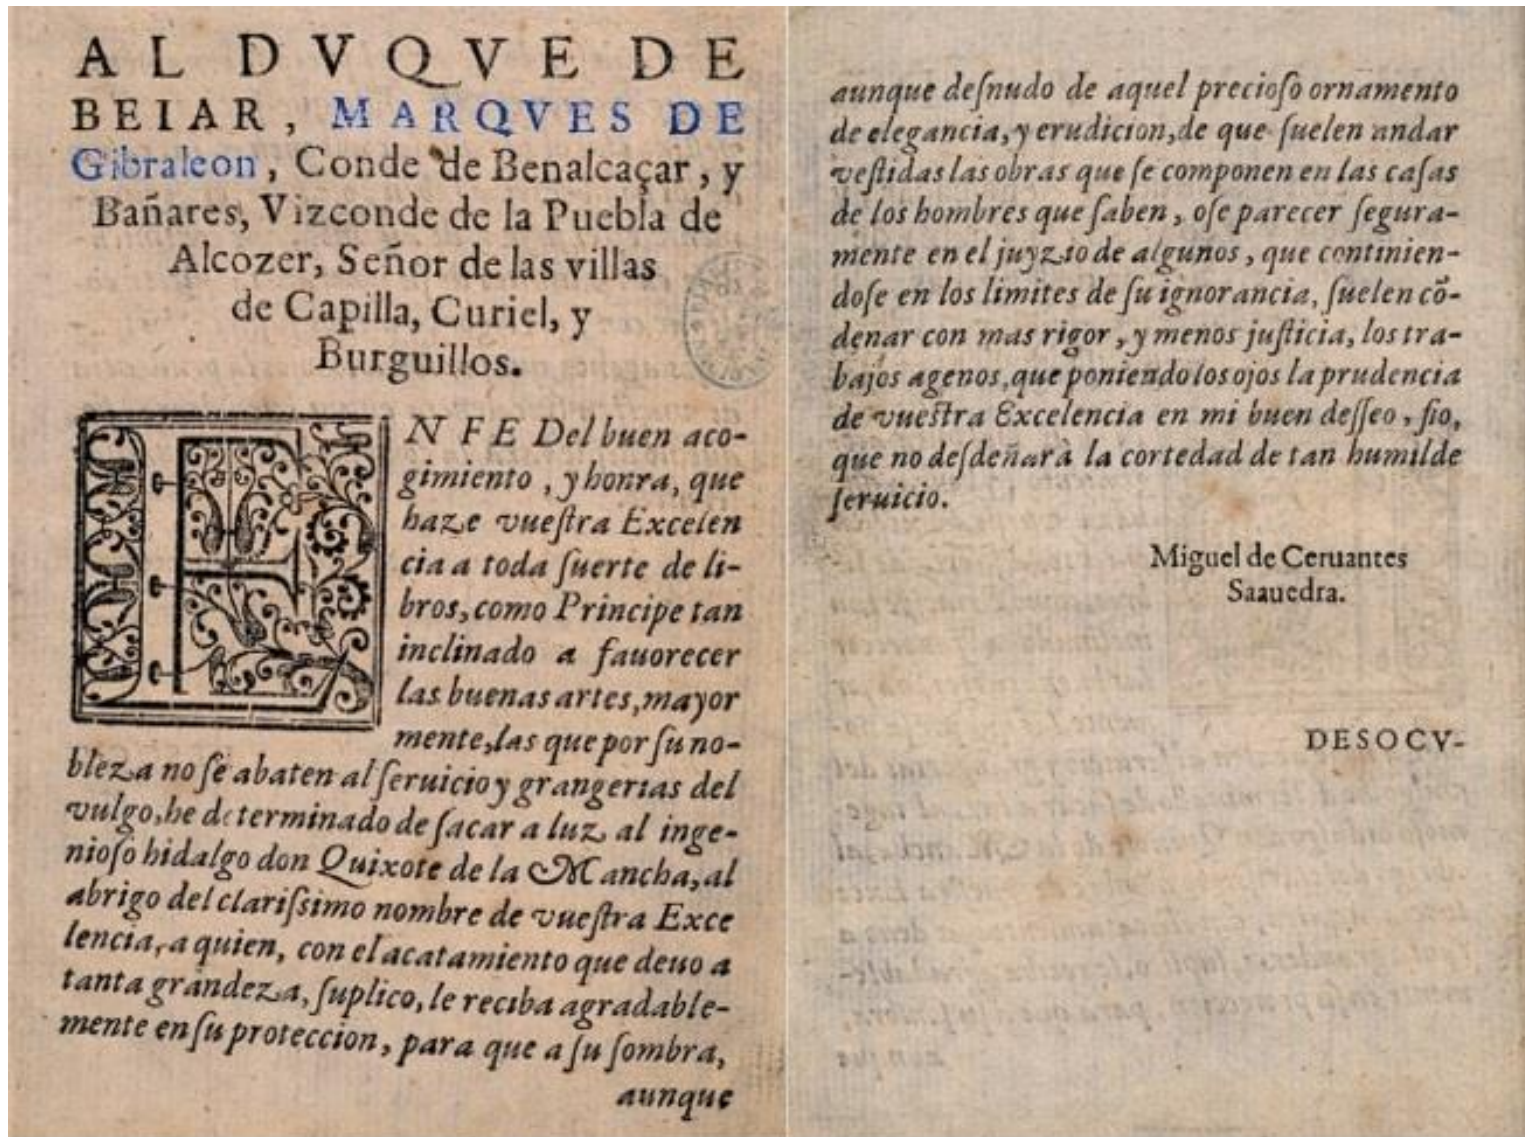 AL DVQVE DE
BEIAR, MARQVES DE
Gibraleon, Conde de Benalcaçar, y
Bañares, Vizconde de la Puebla de
Alcozer, Señor de las villas
de Capilla, Curiel, y
Burguillos.
EN FE Del buen aco-
gimiento, y honra, que
haze vueſtra Excelen
cia a toda ſuerte de li-
bros, como Principe tan
inclinado a fauorecer
las buenas artes, mayor
mente, las que por ſu no-
bleza no ſe abaten al ſeruicio y grangerias del
vulgo, he determinado de ſacar a luz al inge-
nioſo hidalgo don Quixote de la Mancha, al
abrigo del clariſsimo nombre de vueſtra Exce
lencia, a quien, con el acatamiento que deuo a
tanta grandeza, ſuplico, le reciba agradable-
mente en ſu proteccion, para que a ſu ſombra,
aunque
aunque deſnudo de aquel precioſo ornamento
de elegancia, y erudicion, de que ſuelen andar
veſtidas las obras que ſe componen en las caſas
de los hombres que ſaben, oſe parecer ſegura-
mente en el juyzio de algunos, que continien-
doſe en los limites de ſu ignorancia, ſuelen cõ-
denar con mas rigor, y menos juſticia, los tra-
bajos agenos, que poniendo los ojos la prudencia
de vueſtra Excelencia en mi buen deſſeo, fio,
que no deſdeñarà la cortedad de tan humilde
ſeruicio.
Miguel de Ceruantes
Saauedra.
DESOCV-